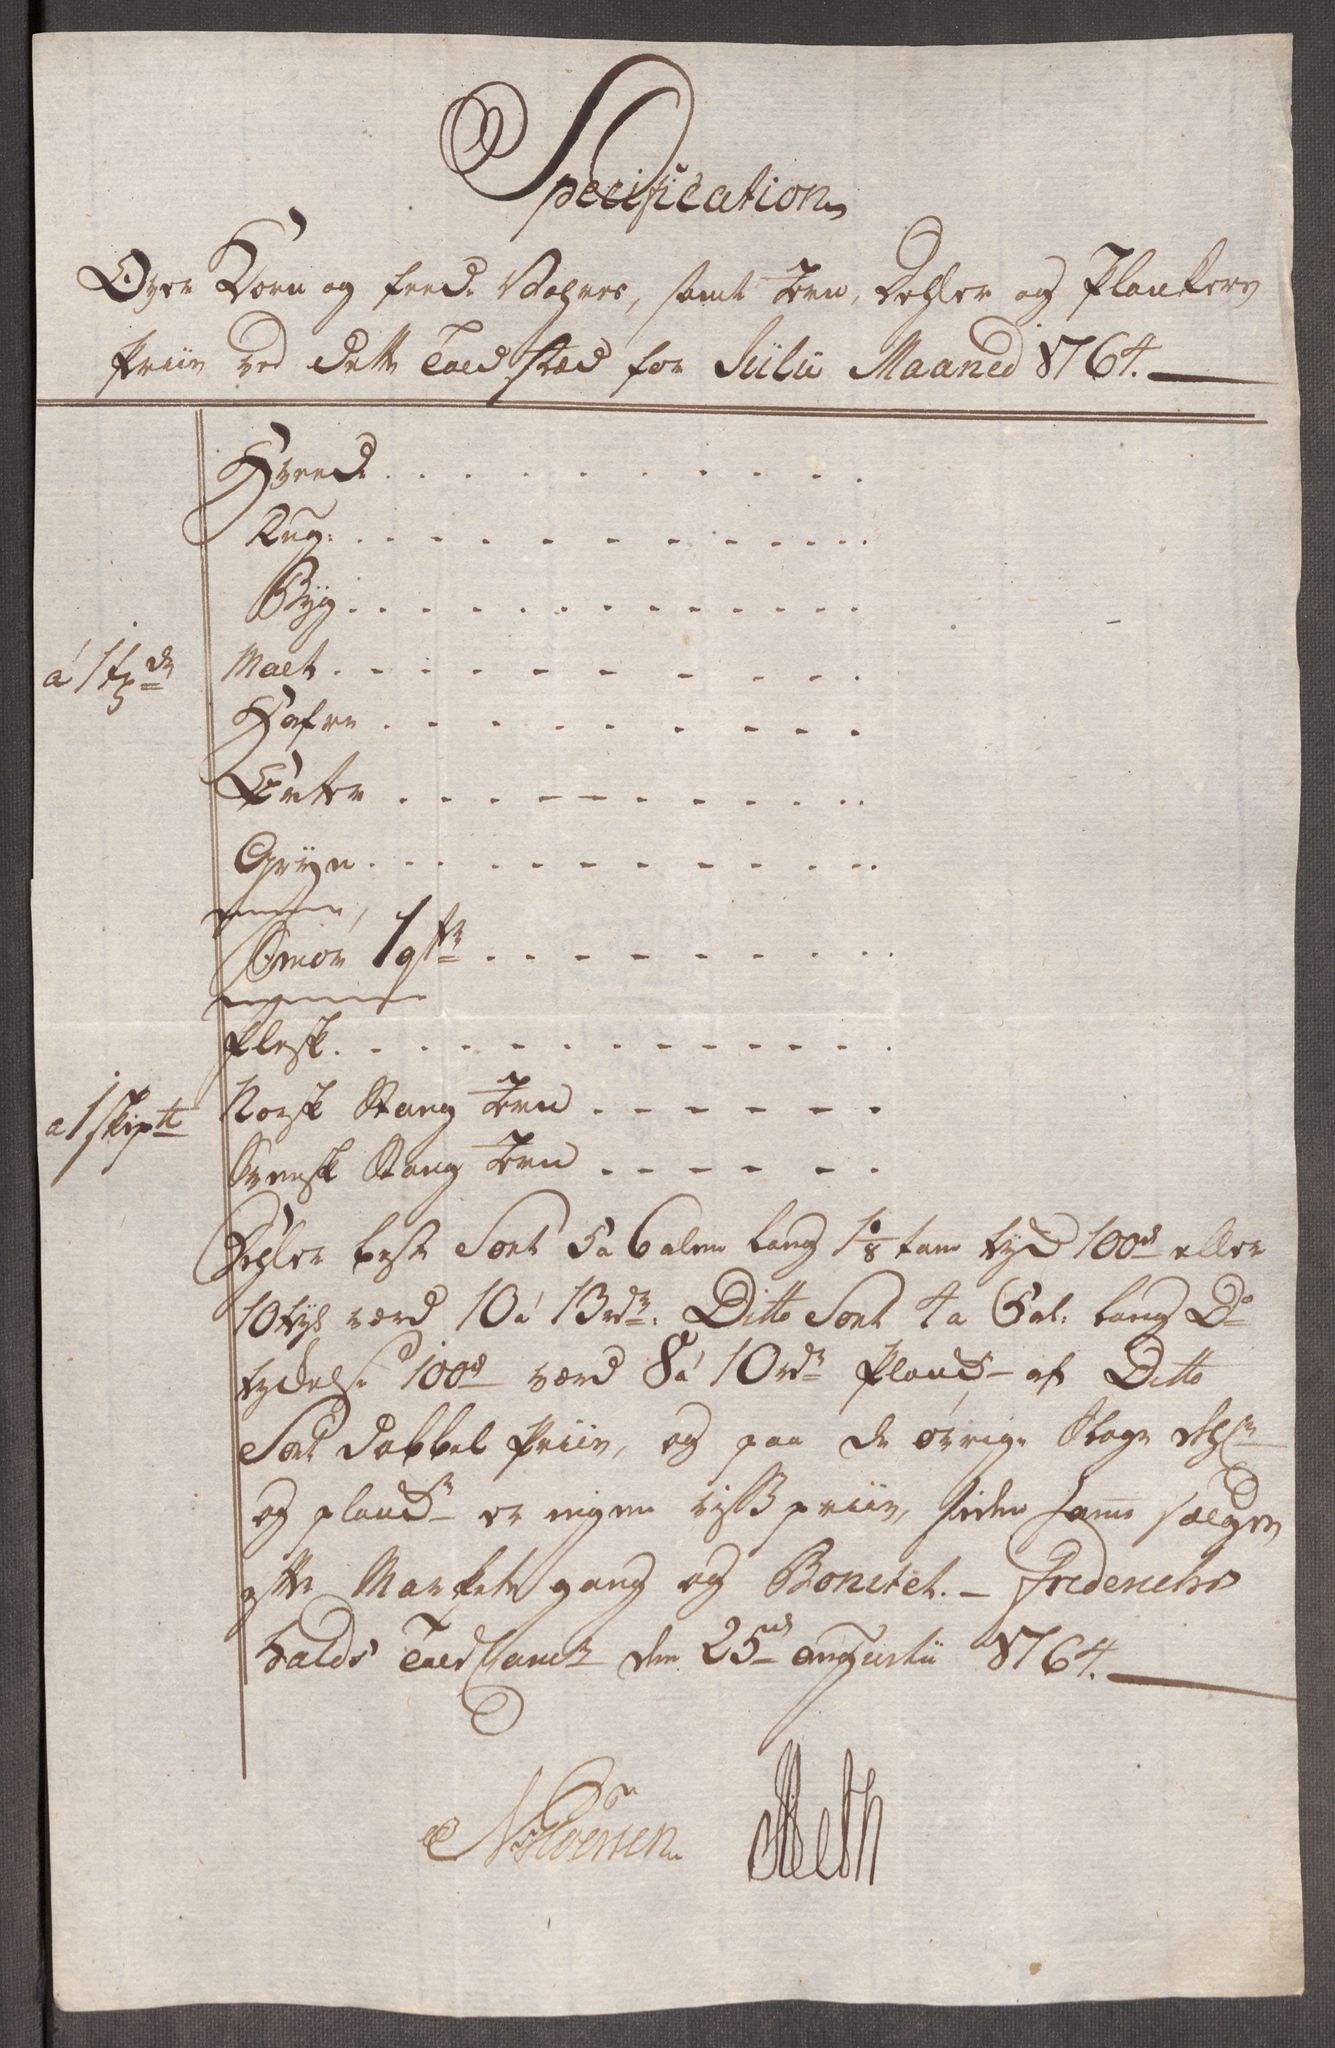 Specification
Over Korn og feede Vahres, samt Jern, Dehler og Plankers
Priis ved dette Told stæd for Julii Maaned 1764.
Hvede
Rug:
Byg
á 1 tde
Malt
Hafre
Erter
Gryn
Smør 1
Flesk
a 1 skip℔
Norsk Stang Jern
Svensk Stang Jern
Dehler beste Sort 5 a 6 alen lang 1 1/8 tom tyk 100d eller
10 tyl værd 10 á 13 rdr. Ditto Sort 4 a 5 al: lang Do
tydelse 100d værd 8 á 10 rdr Plank af Ditto
Sort dobbel Priis, og paa de øvrige Slags
og plank er ingen viss priis, siden samme sælges
efter Markets gang og Bonitet. – Friderichs
halds Told Cam̅er den 25de Augustii 1764.